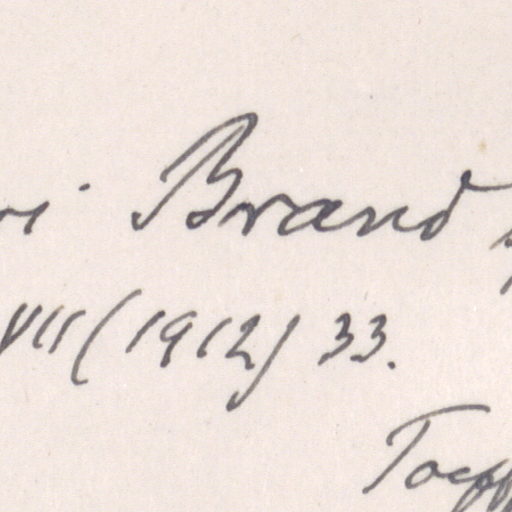 i Brand
VII (1912) 33.
Toepf